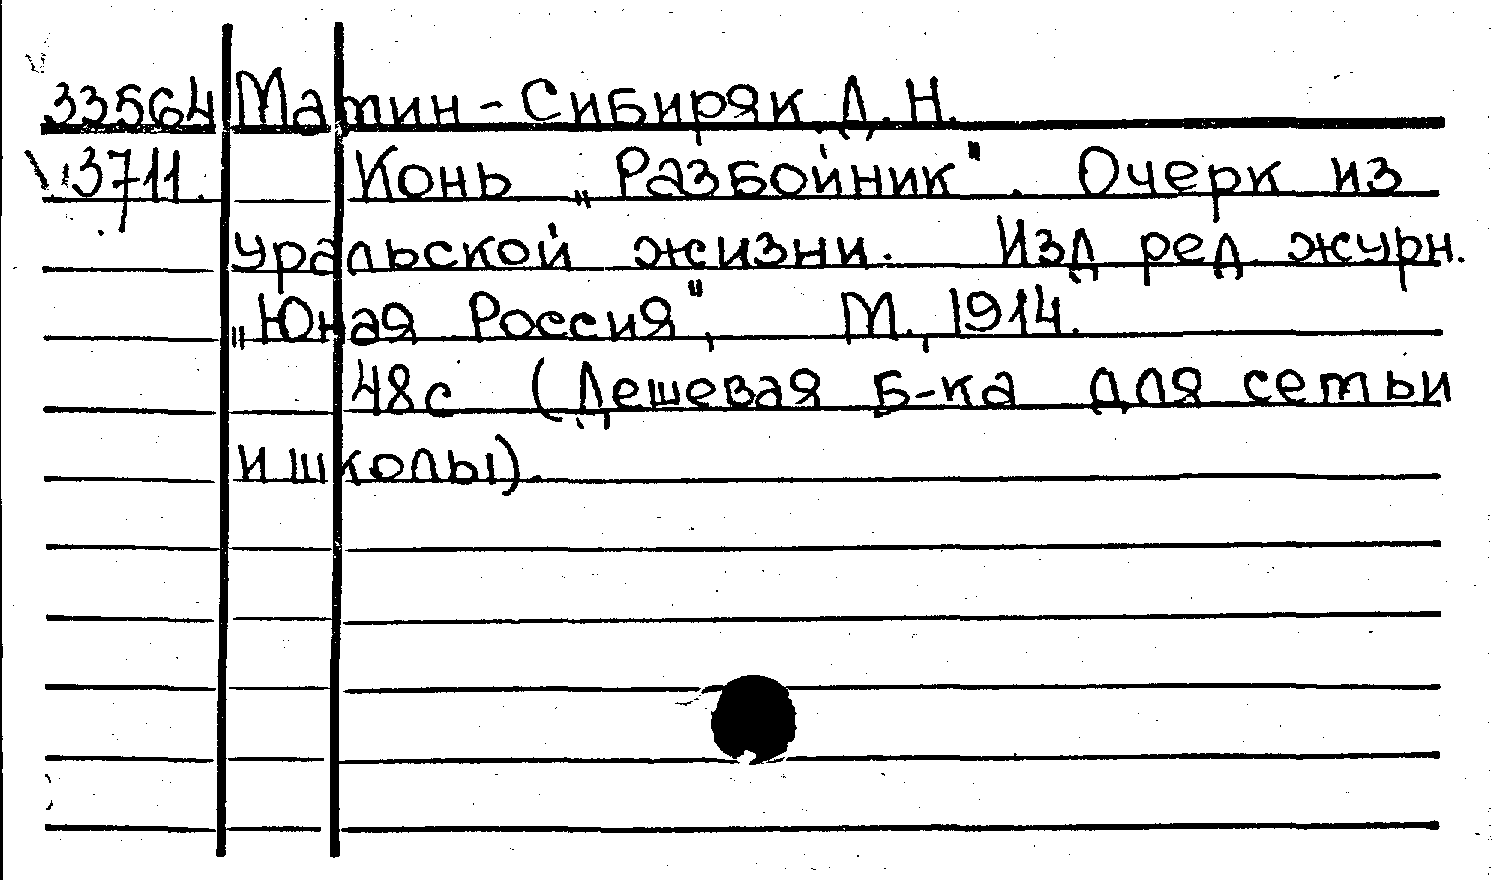 33564 Матин-Сибиряк Д.Н.
3711. Конь „Разбойник". Очерк из
уральской жизни. Изд ред журн.
„Юная Россия", М., 1914.
48с (Дешевая Б-ка для сетьи
и школы).